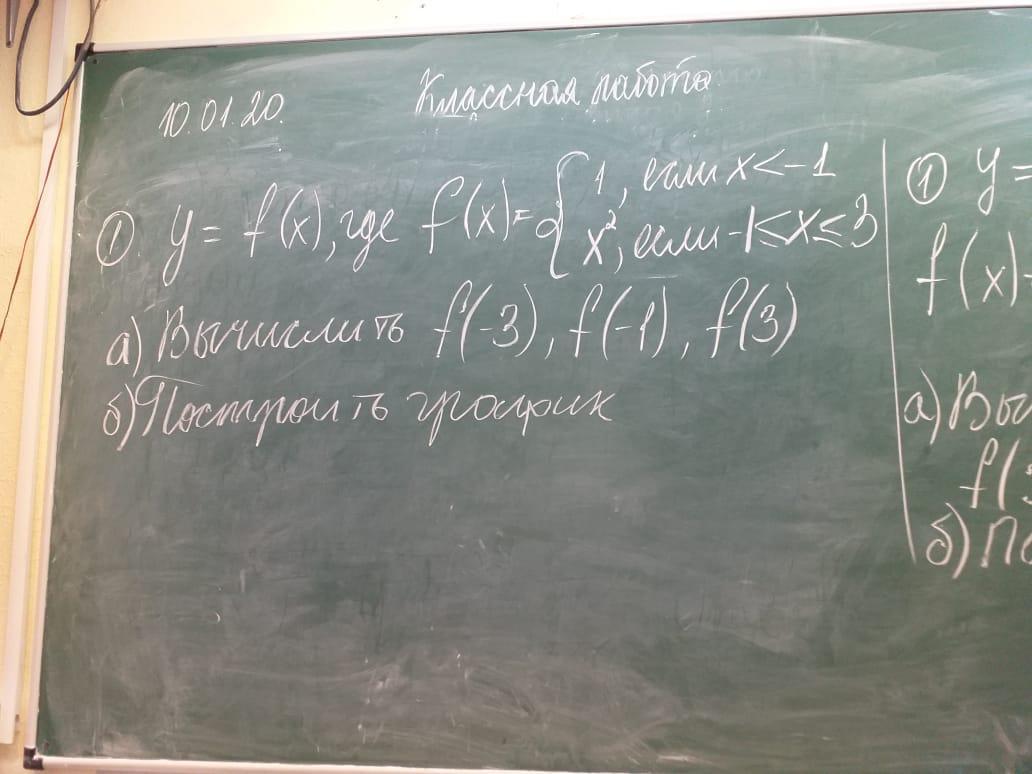 10.01.20.
Классная работа
① y = f(x), где f(x) = { 1, если x < -1
x², если -1 ≤ x ≤ 3
а) Вычислить f(-3), f(-1), f(3)
б) Построить график
① y =
f(x)
а) Вы
f(
б) По